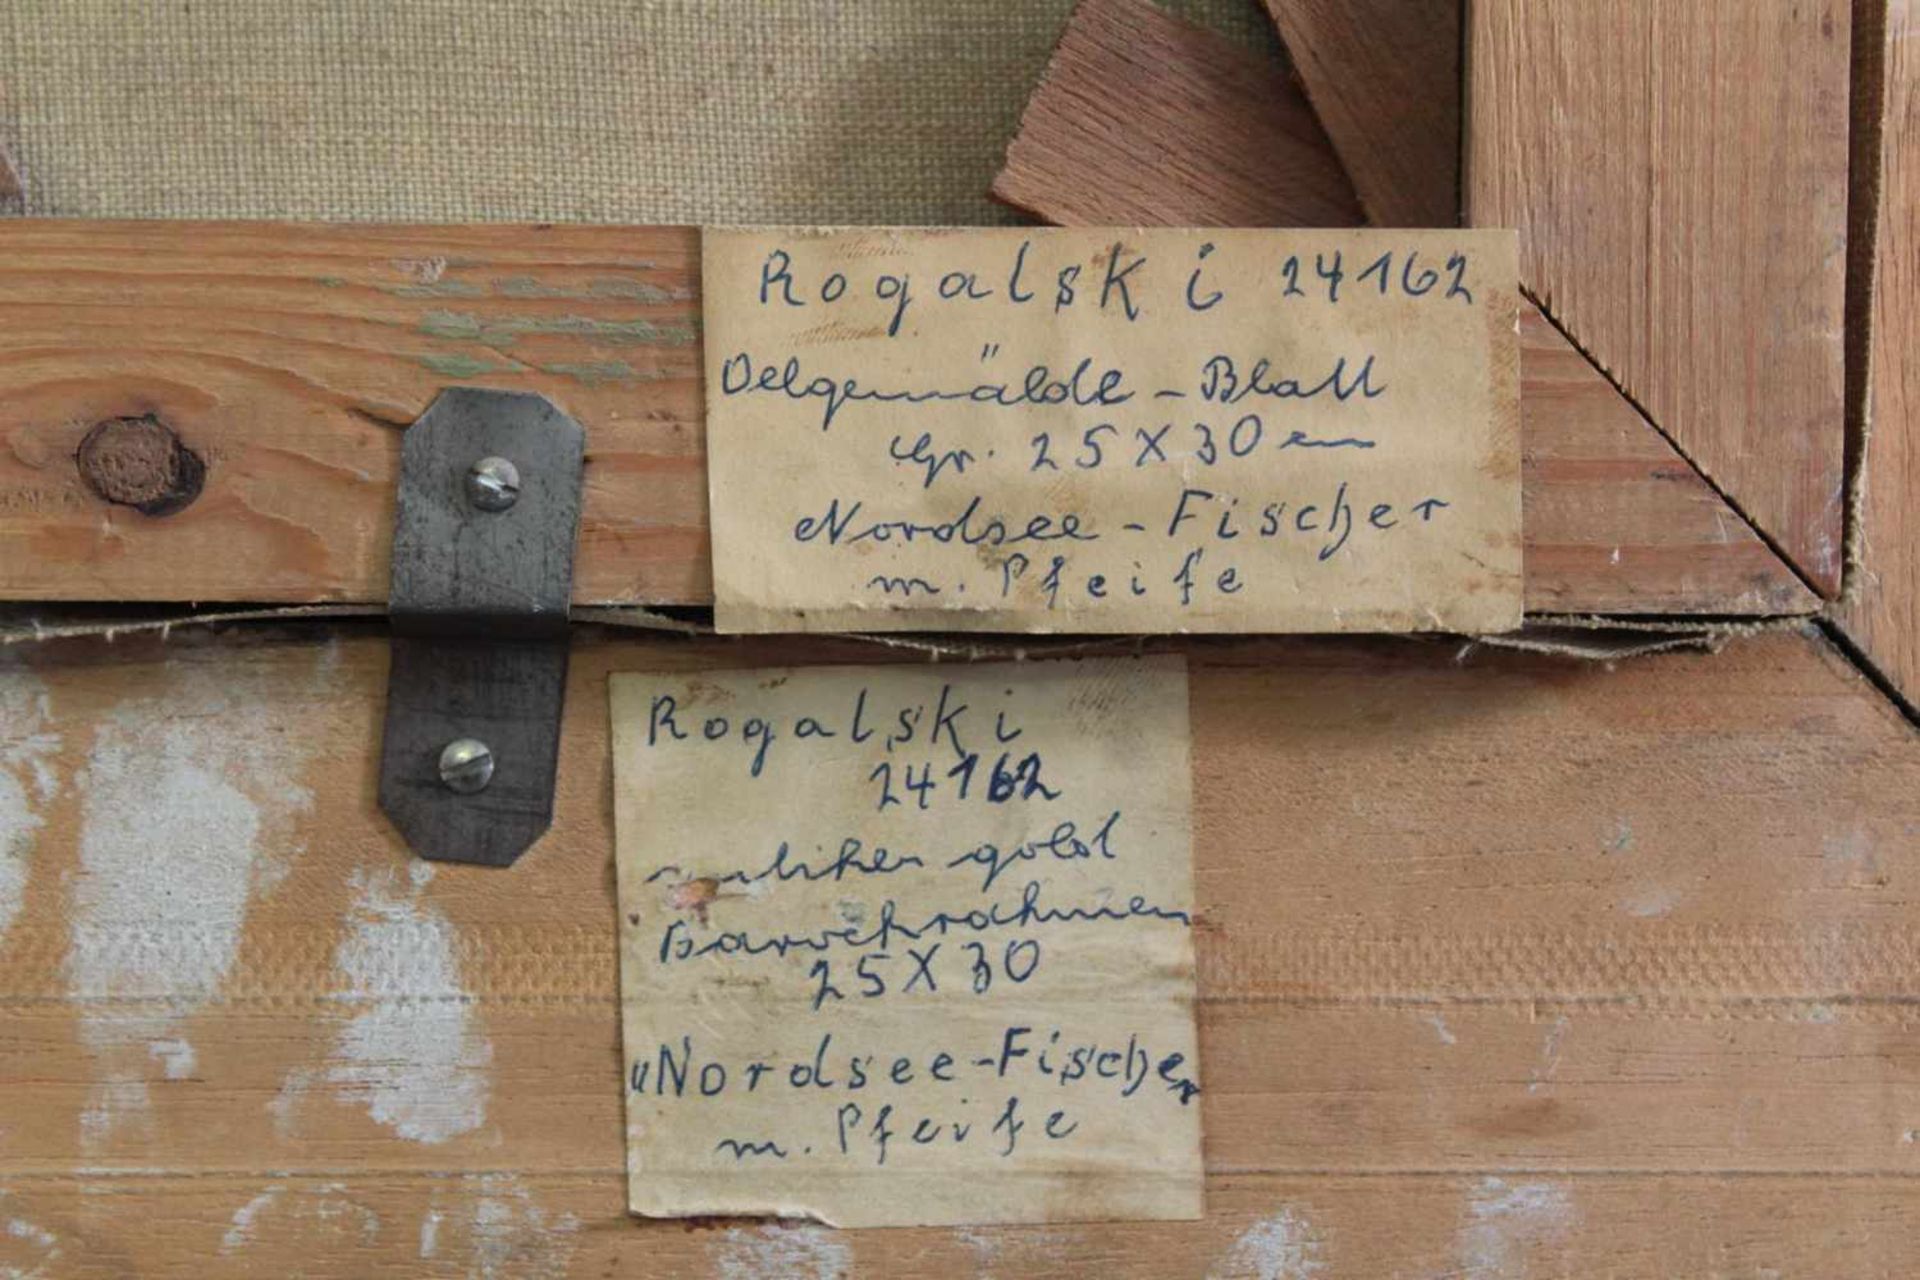 Rogalski 24162
Oelgemälde - Blatt
Gr. 25 X 30 cm
Nordsee - Fischer
m. Pfeife
Rogalski
24162
antiken gold
Barockrahmen
25 X 30
"Nordsee - Fischer
m. Pfeife